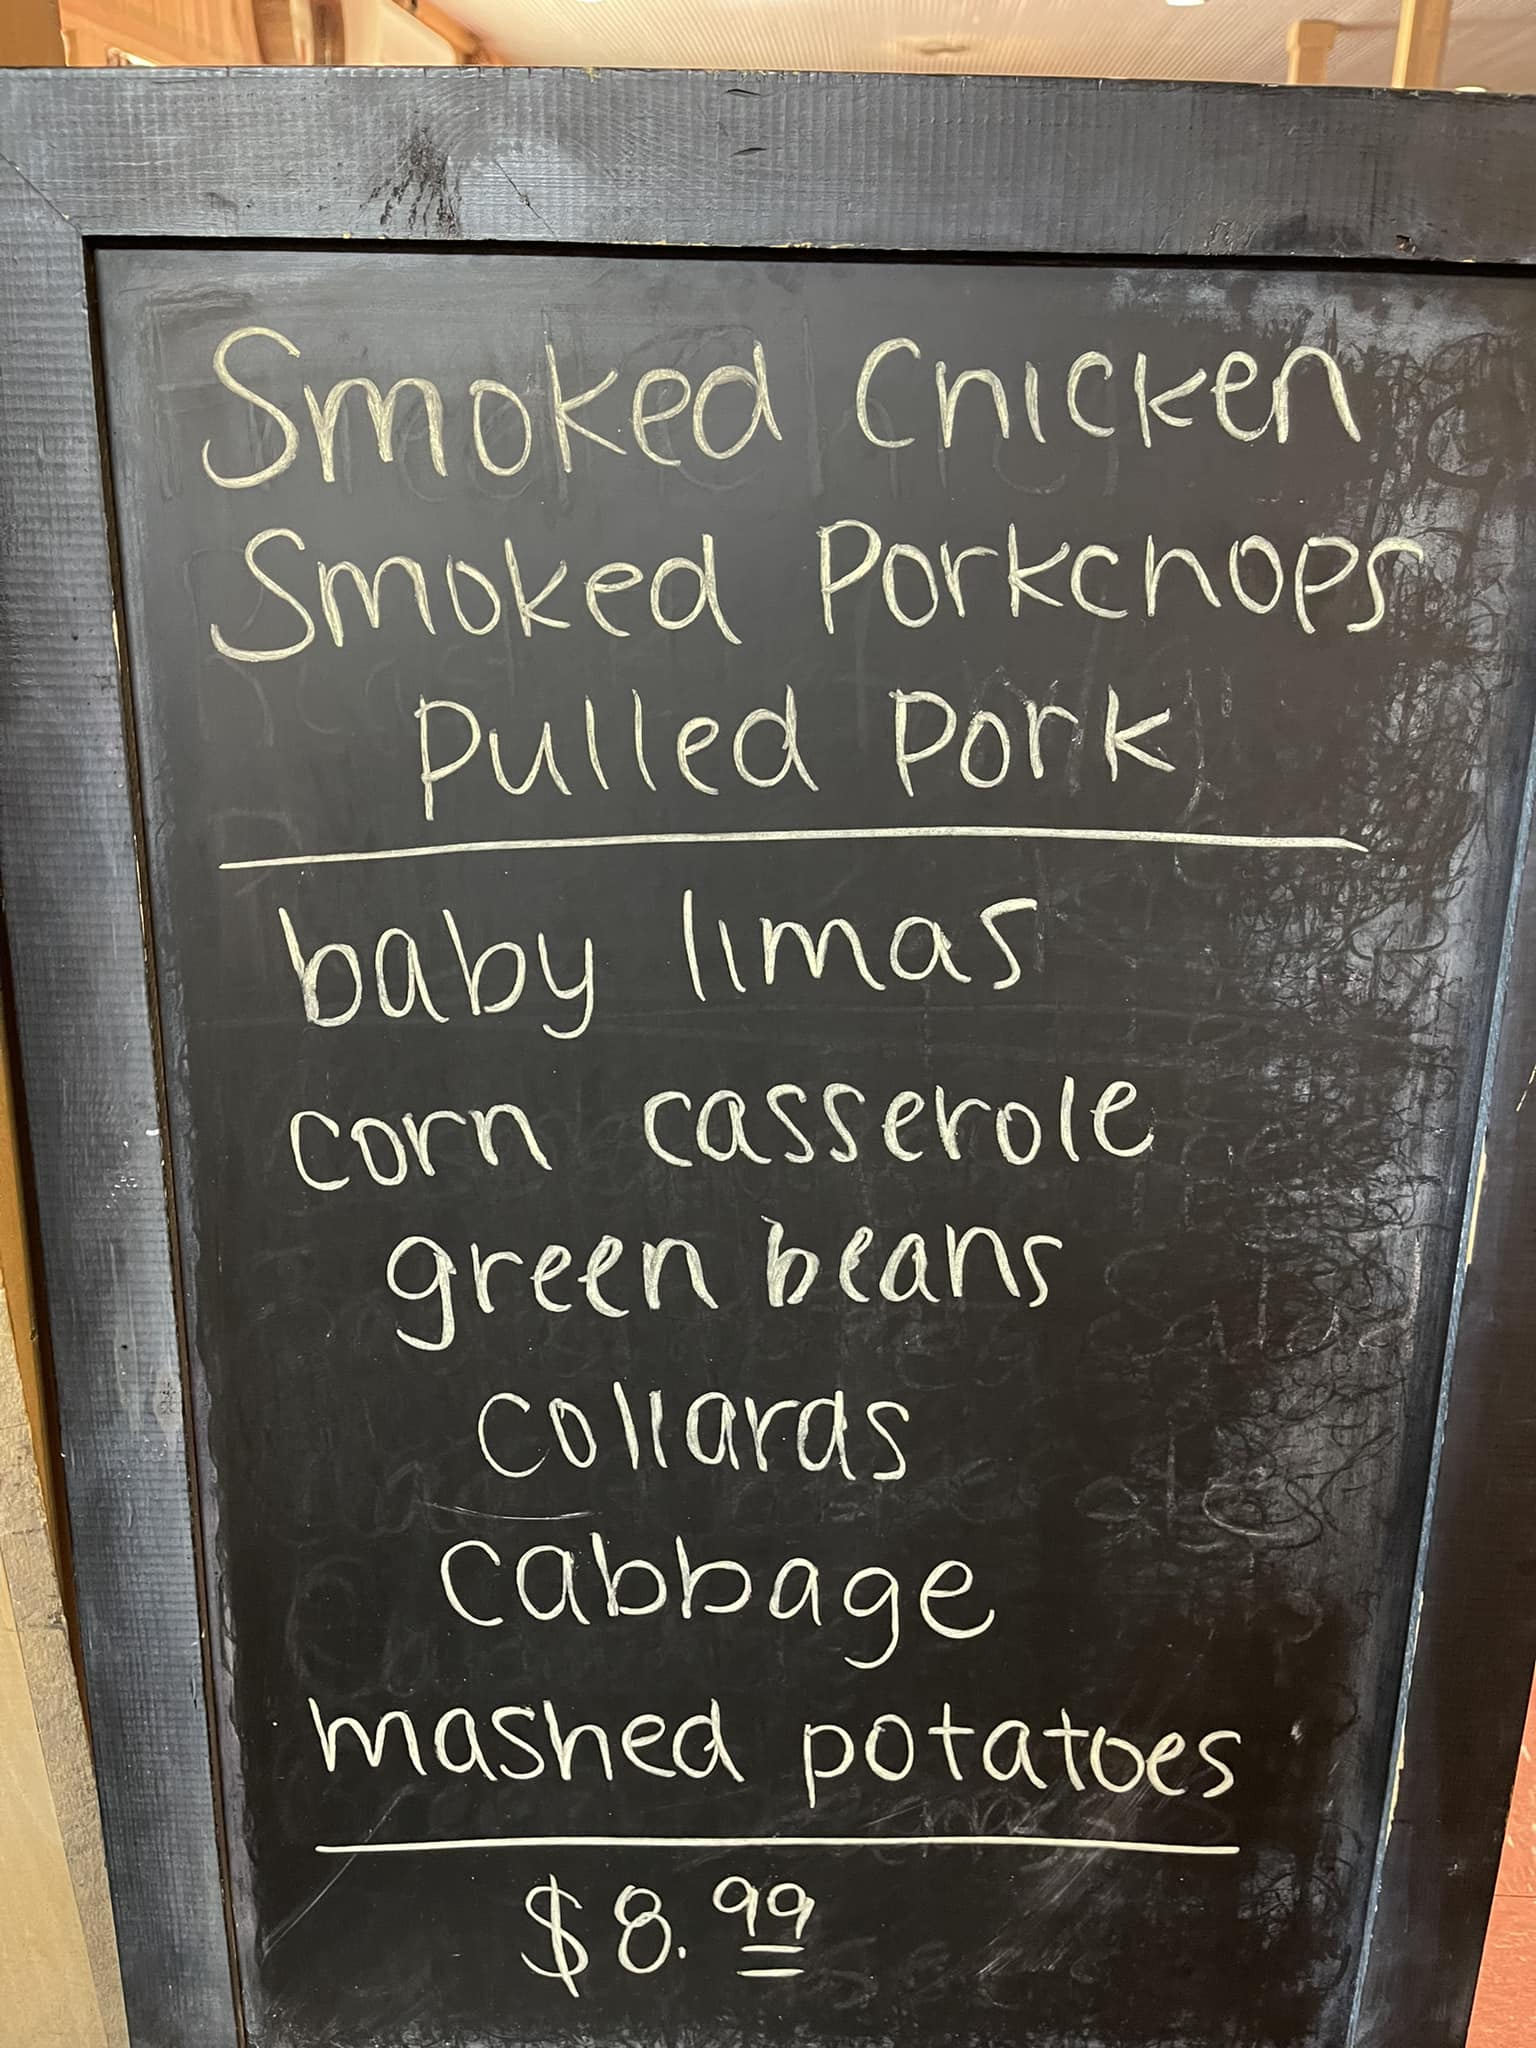 Smoked Chicken
Smoked Porkchops
Pulled Pork
baby limas
corn casserole
green beans
collards
cabbage
mashed potatoes
$8.99